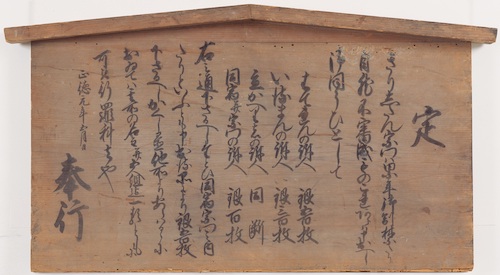 定
きりしたん宗門ハ累年御制禁たり
自然不審成ものこれあらハ申出へし
御ほうひとして
はてれんの訴人 銀五百枚
いるまんの訴人 銀三百枚
立かへり者の訴人 同断
同宿并宗門の訴人 銀百枚
右之通下さるへしたとひ同宿宗門之内
たりといふとも申出る品により銀五百枚
下さるへしかくし置他所よりあらはるゝに
おゐてハ其所の名主并五人組一類とも
可被行罪科者也
正徳元年五月日
奉行